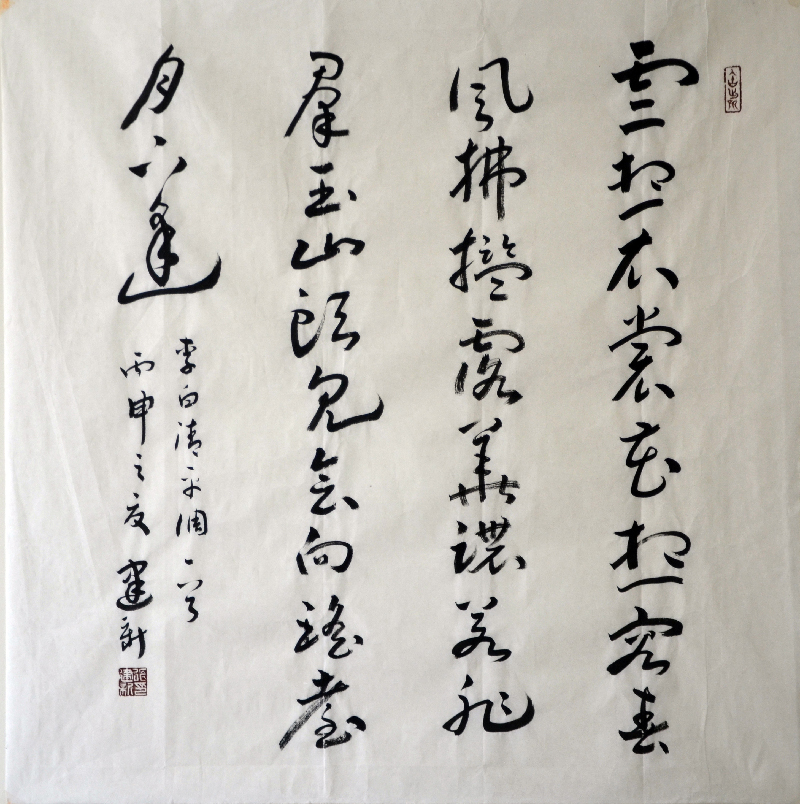 雲想衣裳花想容春
風拂檻露華濃若非
羣玉山頭見會向瑤臺
月下逢
李白清平調一首
丙申之夏 建新